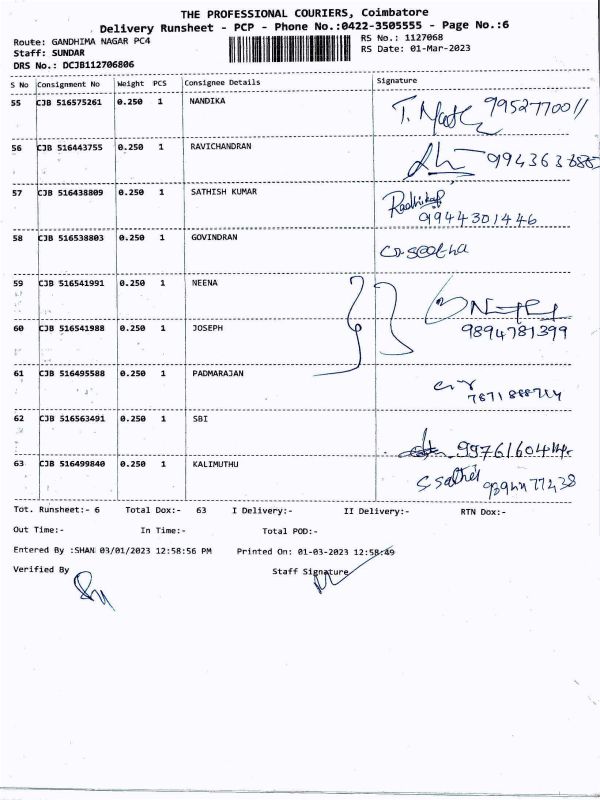 THE PROFESSIONAL COURIERS, Coimbatore
Delivery Runsheet - PCP - Phone No.:0422-3505555 - Page No.:6
Route: GANDHIMA NAGAR PC4 RS No.: 1127068
Staff: SUNDAR RS Date: 01-Mar-2023
DRS No.: DCJB112706806
S No Consignment No Weight PCS Consignee Details Signature
55 CJB 516575261 0.250 1 NANDIKA 9952770011
56 CJB 516443755 0.250 1 RAVICHANDRAN
57 CJB 516438809 0.250 1 SATHISH KUMAR
9944301446
58 CJB 516538803 0.250 1 GOVINDRAN
59 CJB 516541991 0.250 1 NEENA
60 CJB 516541988 0.250 1 JOSEPH 9894781399
61 CJB 516495588 0.250 1 PADMARAJAN
62 CJB 516563491 0.250 1 SBI
63 CJB 516499840 0.250 1 KALIMUTHU
Tot. Runsheet:- 6 Total Dox:- 63 I Delivery:- II Delivery:- RTN Dox:-
Out Time:- In Time:- Total POD:-
Entered By :SHAN 03/01/2023 12:58:56 PM Printed On: 01-03-2023 12:58:49
Verified By Staff Signature